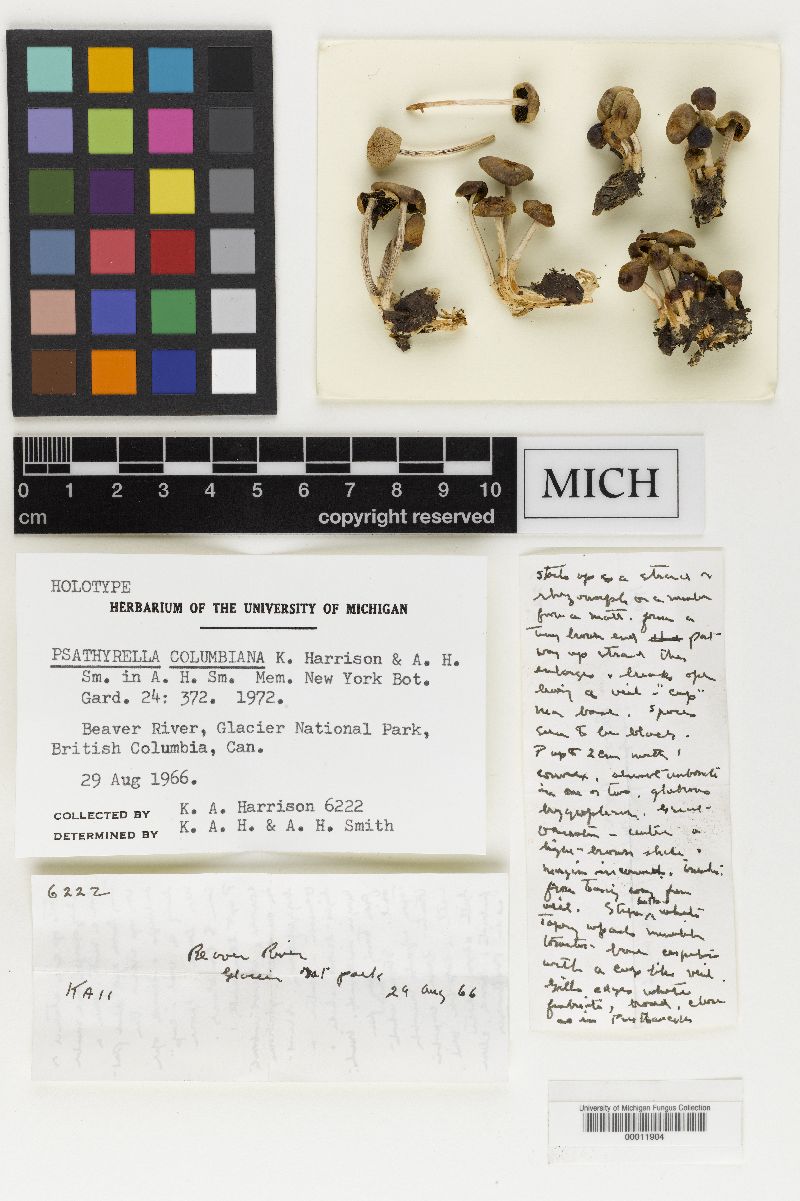 0 1 2 3 4 5 6 7 8 9 10
cm copyright reserved
MICH
HOLOTYPE
HERBARIUM OF THE UNIVERSITY OF MICHIGAN
PSATHYRELLA COLUMBIANA K. Harrison & A. H.
Sm. in A. H. Sm. Mem. New York Bot.
Gard. 24: 372. 1972.
Beaver River, Glacier National Park,
British Columbia, Can.
29 Aug 1966.
COLLECTED BY K. A. Harrison 6222
DETERMINED BY K. A. H. & A. H. Smith
6222
Beaver River
Glacier Nat park
KAH 29 Aug 66
starts up as a strand or
rhizomorph on a number
from a matt. from a
tiny brown end part
way up strand then
enlarges & breaks open
leaving a veil "cup"
near base. Spores
seem to be black.
P up to 2 cm
convex, almost umbonate
in one or two, glabrous
hygrophanous,
center a
light-brown shade &
margin incurved,
from veil. Stipe white
upwards
base
with a cup like veil.
Gills edges white
fimbriate, broad, close
as in
University of Michigan Fungus Collection
00011904